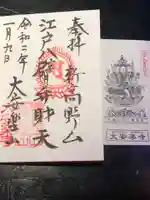 奉拝
新高野山
江戸八臂弁財天
大安楽寺
令和二年
一月九日
大安楽寺